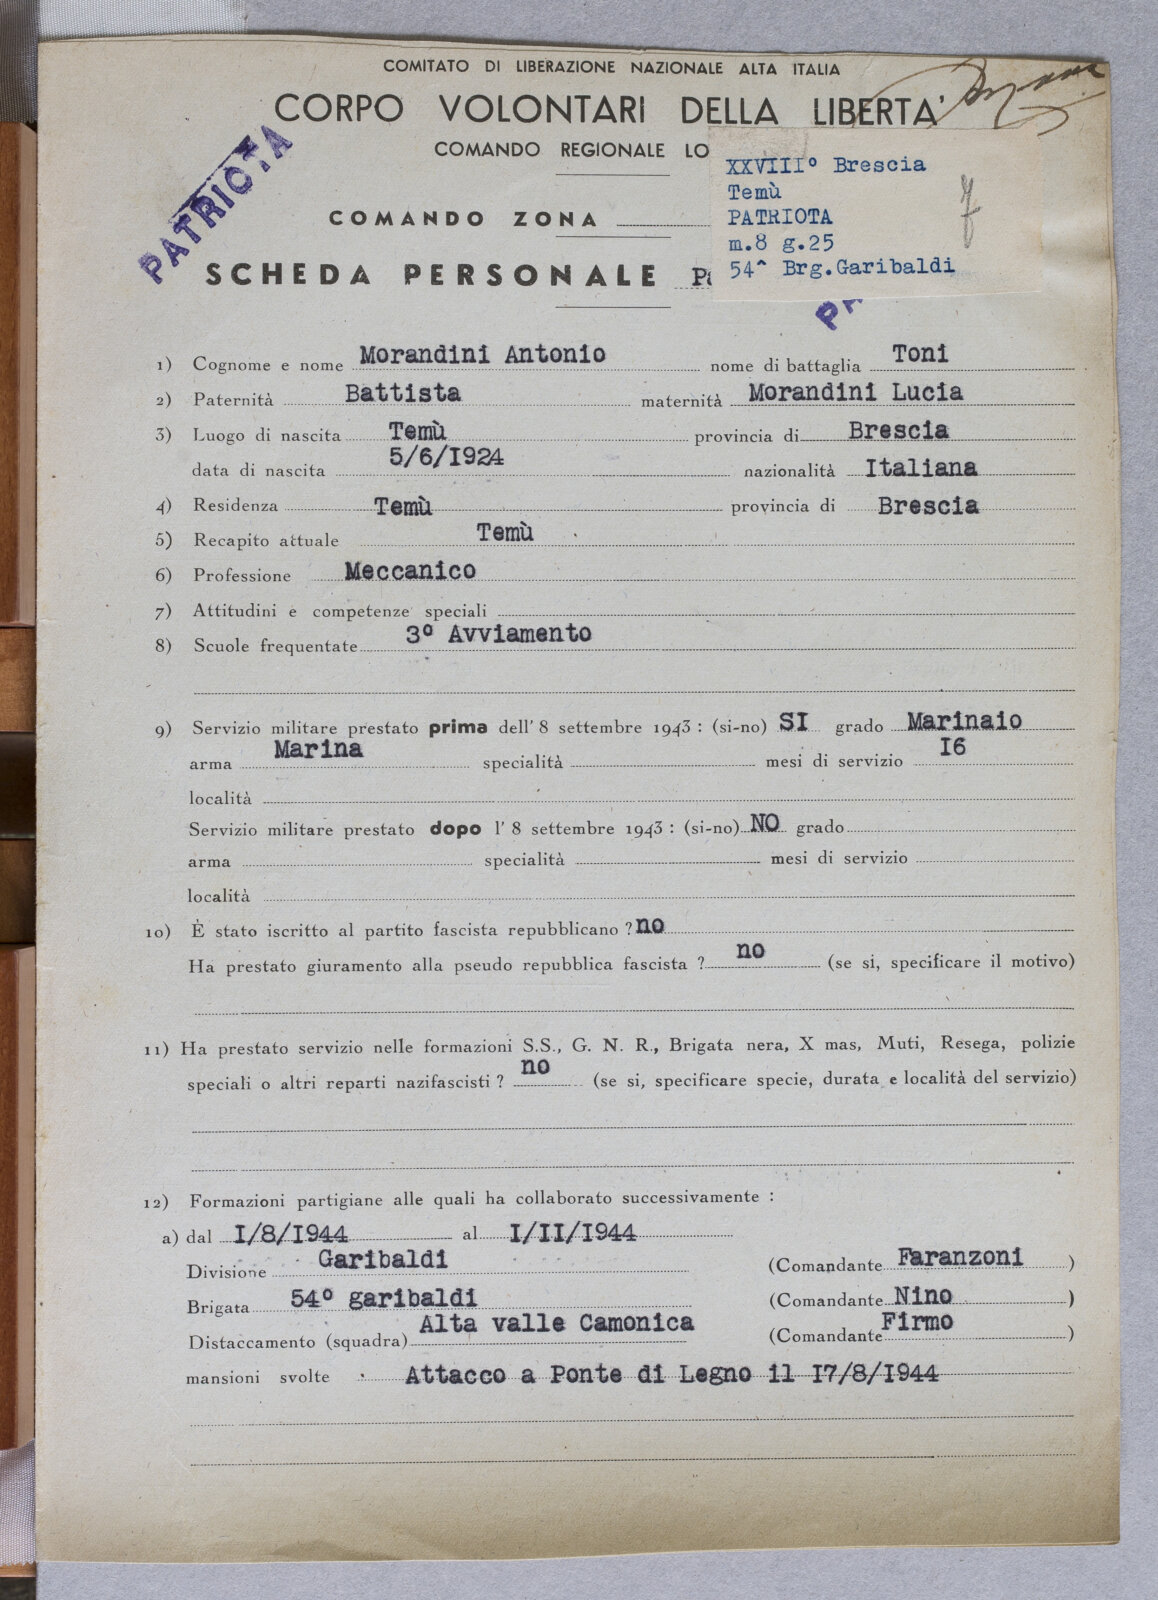 COMITATO DI LIBERAZIONE NAZIONALE ALTA ITALIA
CORPO VOLONTARI DELLA LIBERTA'
COMANDO REGIONALE LO
PATRIOTA
XXVIII° Brescia
Temù
PATRIOTA
m.8 g.25
54^ Brg.Garibaldi
COMANDO ZONA
SCHEDA PERSONALE Pa
PA
1) Cognome e nome Morandini Antonio nome di battaglia Toni
2) Paternità Battista maternità Morandini Lucia
3) Luogo di nascita Temù provincia di Brescia
data di nascita 5/6/I924 nazionalità Italiana
4) Residenza Temù provincia di Brescia
5) Recapito attuale Temù
6) Professione Meccanico
7) Attitudini e competenze speciali
8) Scuole frequentate 3° Avviamento
9) Servizio militare prestato prima dell' 8 settembre 1943 : (si-no) SI grado Marinaio
arma Marina specialità mesi di servizio I6
località
Servizio militare prestato dopo l' 8 settembre 1943 : (si-no) NO grado
arma specialità mesi di servizio
località
10) È stato iscritto al partito fascista repubblicano ? no
Ha prestato giuramento alla pseudo repubblica fascista ? no (se si, specificare il motivo)
11) Ha prestato servizio nelle formazioni S.S., G. N. R., Brigata nera, X mas, Muti, Resega, polizie
speciali o altri reparti nazifascisti ? no (se si, specificare specie, durata e località del servizio)
12) Formazioni partigiane alle quali ha collaborato successivamente :
a) dal I/8/I944 al I/II/I944
Divisione Garibaldi (Comandante Faranzoni )
Brigata 54° garibaldi (Comandante Nino )
Distaccamento (squadra) Alta valle Camonica (Comandante Firmo )
mansioni svolte Attacco a Ponte di Legno il I7/8/I944